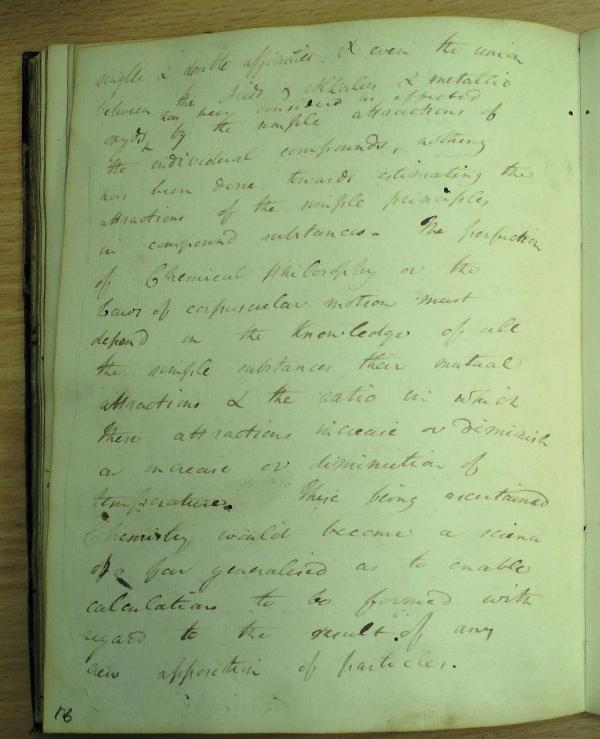 single & double affinities. & even the union
between the Acids & Alkalies & metallic
oxyds has been considered as effected
by the simple attractions of
the individual compounds, nothing
has been done towards estimating the
attractions of the simple principles
in compound substances. The perfection
of Chemical Philosophy or the
Laws of corpuscular motion must
depend on the Knowledge of all
the simple substances, their mutual
attractions & the ratio in which
these attractions increase or diminish
on increase or diminution of
temperature. These being ascertained
Chemistry would become a science
so far generalised as to enable
calculations to be formed with
regard to the result of any
new apposition of particles.
16